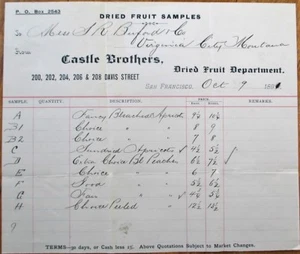 P. O. Box 2543
DRIED FRUIT SAMPLES
To Mess S R Buford & Co
Virginia City Montana
From
Castle Brothers,
Dried Fruit Department.
200, 202, 204, 206 & 208 DAVIS STREET
SAN FRANCISCO, Oct 9 189
SAMPLE. DESCRIPTION. PRICE. REMARKS.
A Fancy Bleached Apricots
B1 Choice " " 8 9
B2 Choice " " 7 8
C Sundried Apricots 4½ 5½
D Extra Choice Bl Peaches 6½ 7½
E Choice " " 6 7
F Good " " 5½ 6½
G Fair " " 4½ 5½
H Choice Peeled " 12½ 13½
TERMS—30 days, or Cash less 1%. Above Quotations Subject to Market Changes.